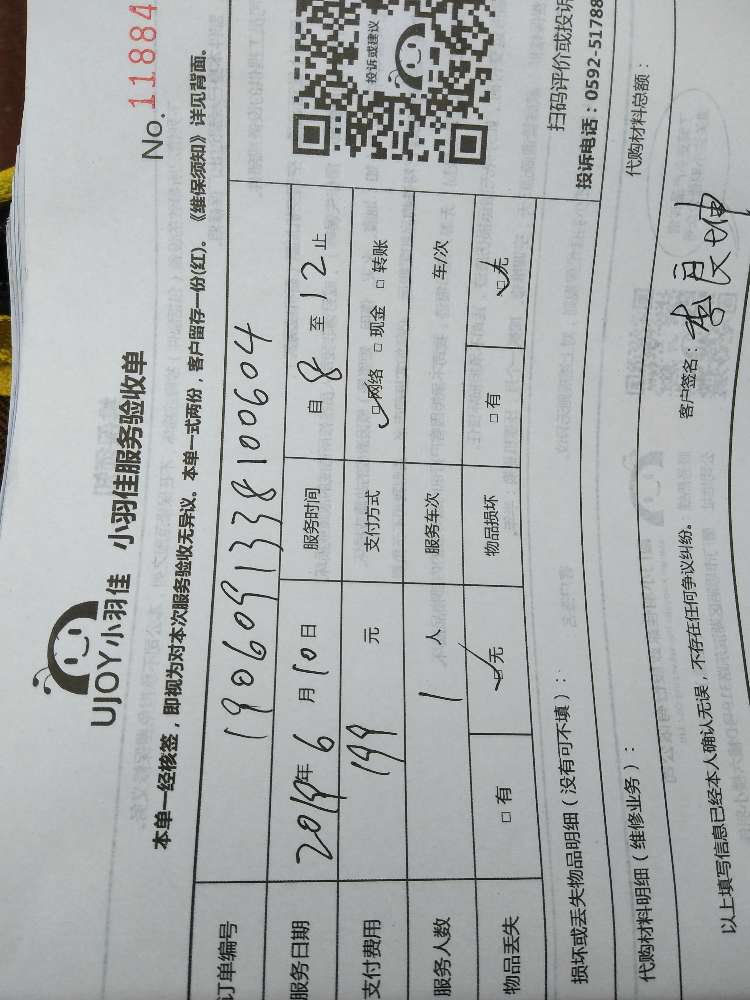 No. 11884
UJOY小羽佳 小羽佳服务验收单
本单一经核签，即视为对本次服务验收无异议。本单一式两份，客户留存一份(红)。《维保须知》详见背面。
订单编号 1906091338100604
服务日期 2019年 6 月 10 日 服务时间 自 8 至 12 止
支付费用 199 元 支付方式 ☑网络 □现金 □转账
服务人数 1 人 服务车次 车/次
物品丢失 □有 ☑无 物品损坏 □有 ☑无
投诉或建议
扫码评价或投诉
投诉电话：0592-51788
损坏或丢失物品明细（没有可不填）：
代购材料明细（维修业务）： 代购材料总额：
以上填写信息已经本人确认无误，不存在任何争议纠纷。 客户签名：